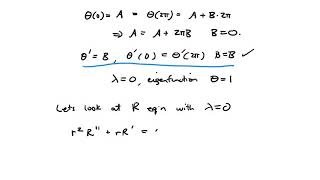 Θ(0) = A = Θ(2π) = A + B·2π
⇒ A = A + 2πB B=0.
Θ' = B, Θ'(0) = Θ'(2π) B=B ✓
λ=0, eigenfunction Θ=1
Lets look at R eqin with λ=0
r²R'' + rR' =